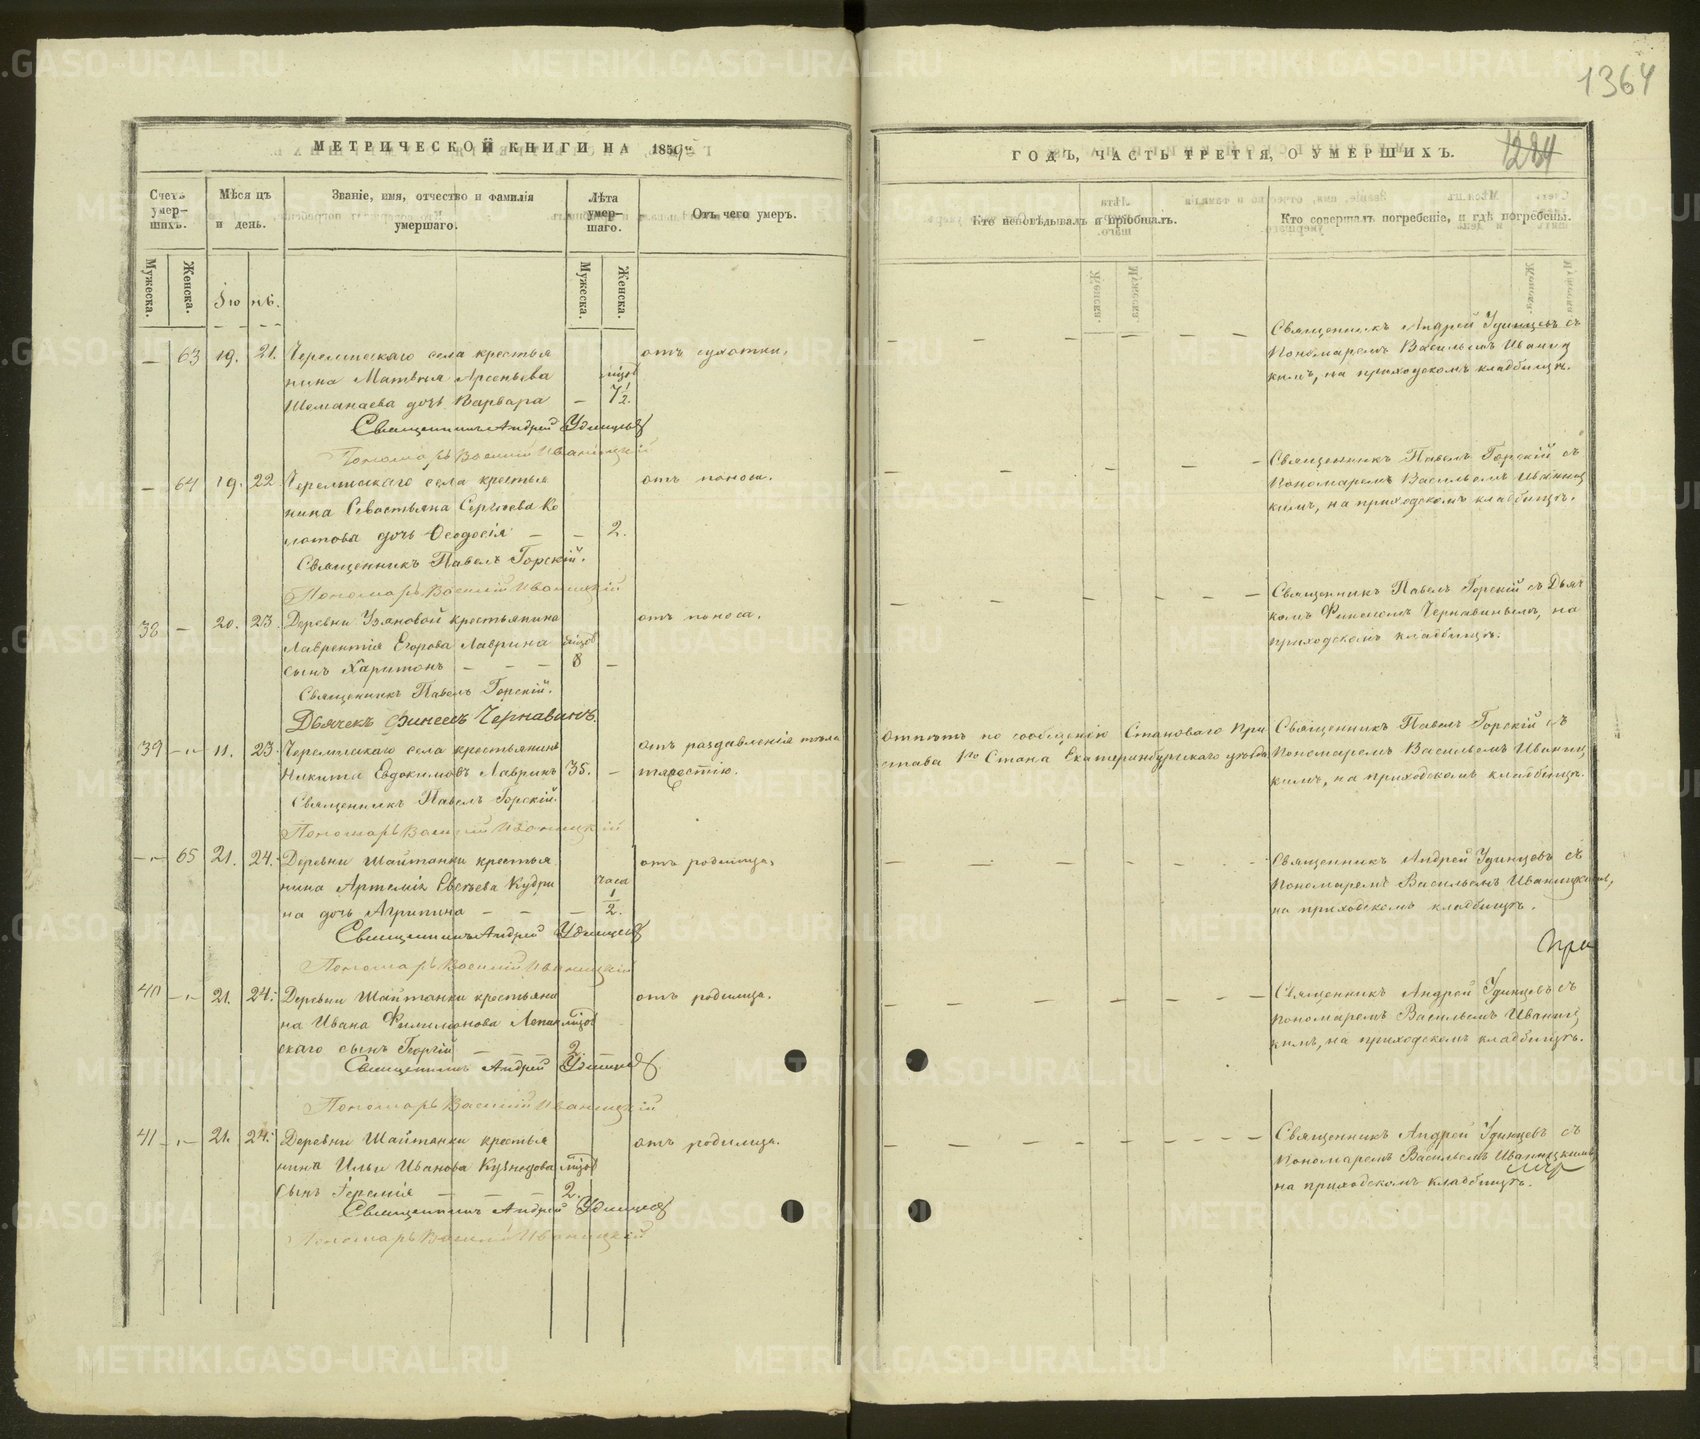 1364
МЕТРИЧЕСКОЙ КНИГИ НА 1859й
Счетъ умер-шихъ.
Мѣсяцъ и день.
Званіе, имя, отчество и фамилія умершаго.
Лѣта умер-шаго.
Отъ чего умеръ.
Мужеска.
Женска.
Мужеска.
Женска.
Іюнь.
— 63 19. 21. Черемисскаго села крестья отъ сухотки.
нина Матвѣя Арсеньева мѣсяцов
Шеманаева дочь Варвара — 7 1/2.
Священникъ Андрей Удинцевъ
Пономарь Василій Иваницкій
— 64 19. 22 Черемисскаго села крестья отъ поноса.
нина Севастьяна Сергѣева Ко
лотова дочь Ѳеодосія — — 2.
Священникъ Павелъ Горскій.
Пономарь Василій Иваницкій
38 — 20. 23. Деревни Узяновой крестьянина отъ поноса.
Лаврентія Егорова Лаврина
сынъ Харитонъ — — — 8 —
Священникъ Павелъ Горскій.
Дьячекъ Финеесъ Чернавинъ
39 —„— 11. 23. Черемисскаго села крестьянинъ отъ раздавленія тѣла
Никита Евдокимовъ Лавринъ 35. — тяжестію.
Священникъ Павелъ Горскій.
Пономарь Василій Иваницкій
—„— 65 21. 24. Деревни Шайтанки крестья отъ родимца.
нина Артемія Евсѣева Кудри часа
на дочь Агрипина — — — 1/2.
Священникъ Андрей Удинцевъ
Пономарь Василій Иваницкій
40 —„— 21. 24. Деревни Шайтанки крестьяни отъ родимца.
на Ивана Филимонова Лепин
скаго сынъ Георгій — — — 2.
Священникъ Андрей Удинцевъ
Пономарь Василій Иваницкій
41 —„— 21. 24. Деревни Шайтанки крестья отъ родимца.
нина Ильи Иванова Кузнецова
сынъ Іеремія — — — 2.
Священникъ Андрей Удинцевъ
Пономарь Василій Иваницкій
ГОДЪ, ЧАСТЬ ТРЕТІЯ, О УМЕРШИХЪ.
1284
Кто исповѣдывалъ и пріобщалъ.
Кто совершалъ погребеніе, и гдѣ погребены.
Священникъ Андрей Удинцевъ съ
Пономаремъ Васильемъ Иваниц
кимъ, на приходскомъ кладбищѣ.
Священникъ Павелъ Горскій съ
Пономаремъ Васильемъ Иваниц
кимъ, на приходскомъ кладбищѣ.
Священникъ Павелъ Горскій съ Дьяч
комъ Финеесомъ Чернавинымъ, на
приходскомъ кладбищѣ.
Отпѣтъ по сообщенію Становаго При
става 1го Стана Екатеринбургскаго уѣзда
Священникъ Павелъ Горскій съ
Пономаремъ Васильемъ Иваниц
кимъ, на приходскомъ кладбищѣ.
Священникъ Андрей Удинцевъ съ
Пономаремъ Васильемъ Иваницкимъ,
на приходскомъ кладбищѣ.
При
Священникъ Андрей Удинцевъ съ
Пономаремъ Васильемъ Иваниц
кимъ, на приходскомъ кладбищѣ.
Священникъ Андрей Удинцевъ съ
Пономаремъ Васильемъ Иваницкимъ
на приходскомъ кладбищѣ.
METRIKI.GASO-URAL.RU